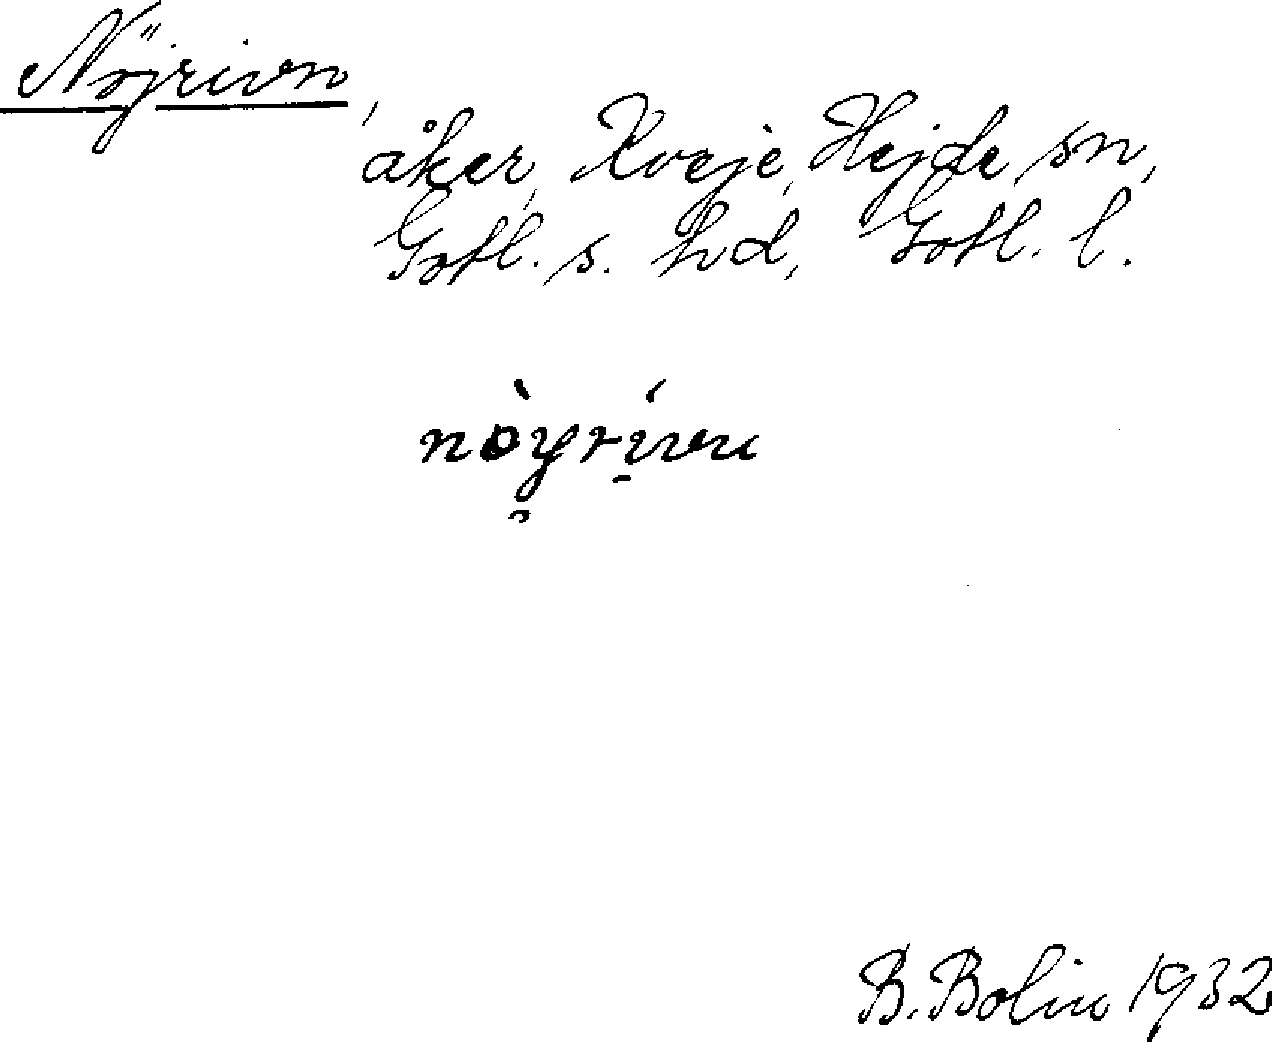 Nöjrivn,
åker, Kveje, Hejde sn,
Gotl. s. hd, Gotl. l.
nòyrívn
B. Bolin 1932